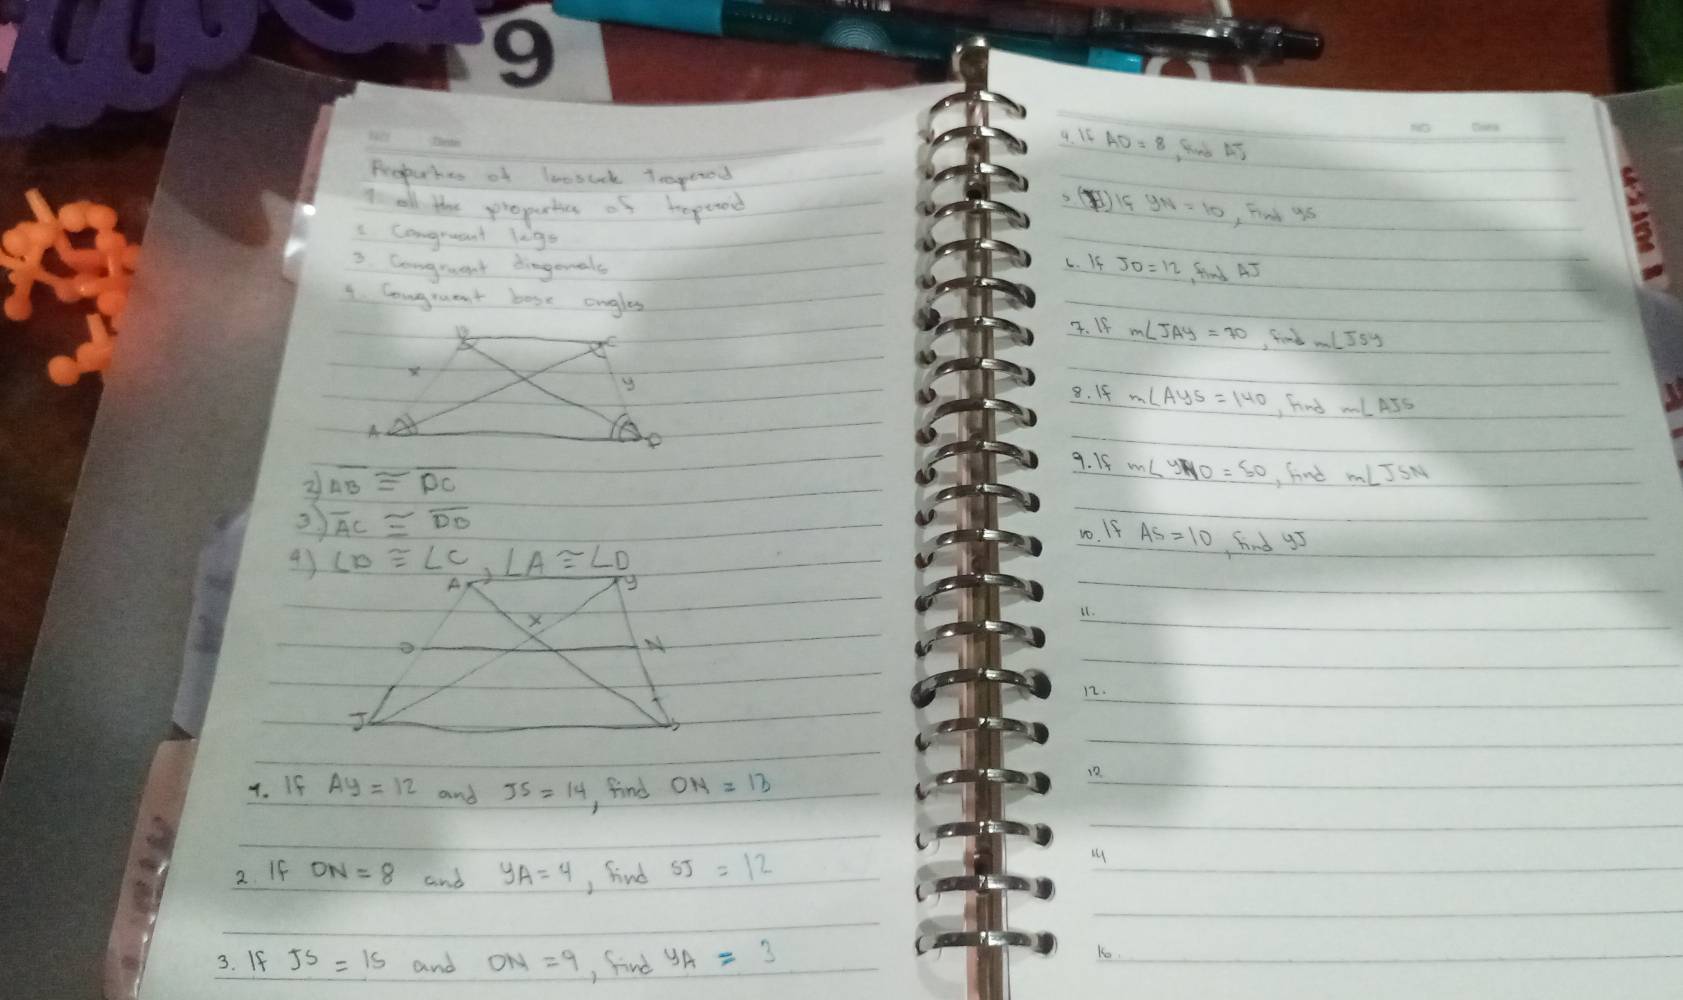 9
NO Date
Properties of Isoscele Trapezoid
1. all the properties of trapezoid
2. Congruent legs
3. Congruent diagonals
4. Congruent base angles
B C
x y
A D
2) AB ≅ DC
3.) AC ≅ DB
4) ∠B ≅ ∠C, ∠A ≅ ∠D
A y
x
O N
J S
1. If Ay = 12 and JS = 14, find ON = 13
2. If ON = 8 and yA = 4, find SJ = 12
3. If JS = 15 and ON = 9, find yA = 3
NO Date
4. If AO = 8, find AJ
5. If yN = 10, Find yS
6. If JO = 12, find AJ
7. If m∠JAy = 70, find m∠JSy
8. If m∠AyS = 140, find m∠AJS
9. If m∠yNO = 50, find m∠JSN
10. If AS = 10, find yJ
11.
12.
13
14